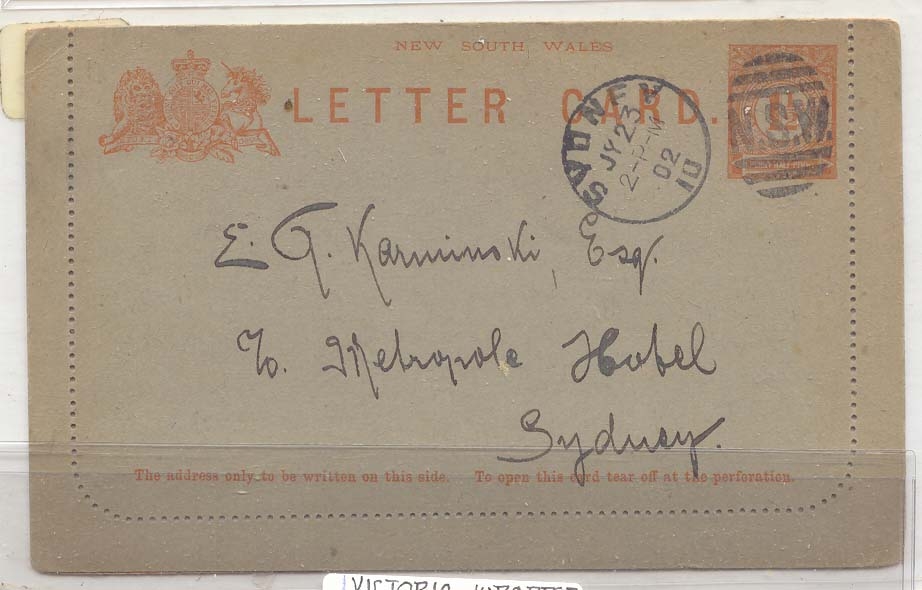 NEW SOUTH WALES
LETTER CARD.
SYDNEY
JY 23
2-P-M
02
10
N.S.W.
E. G. Karminski, Esq.
℅. Metropole Hotel
Sydney.
The address only to be written on this side. To open this card tear off at the perforation.
VICTORIA